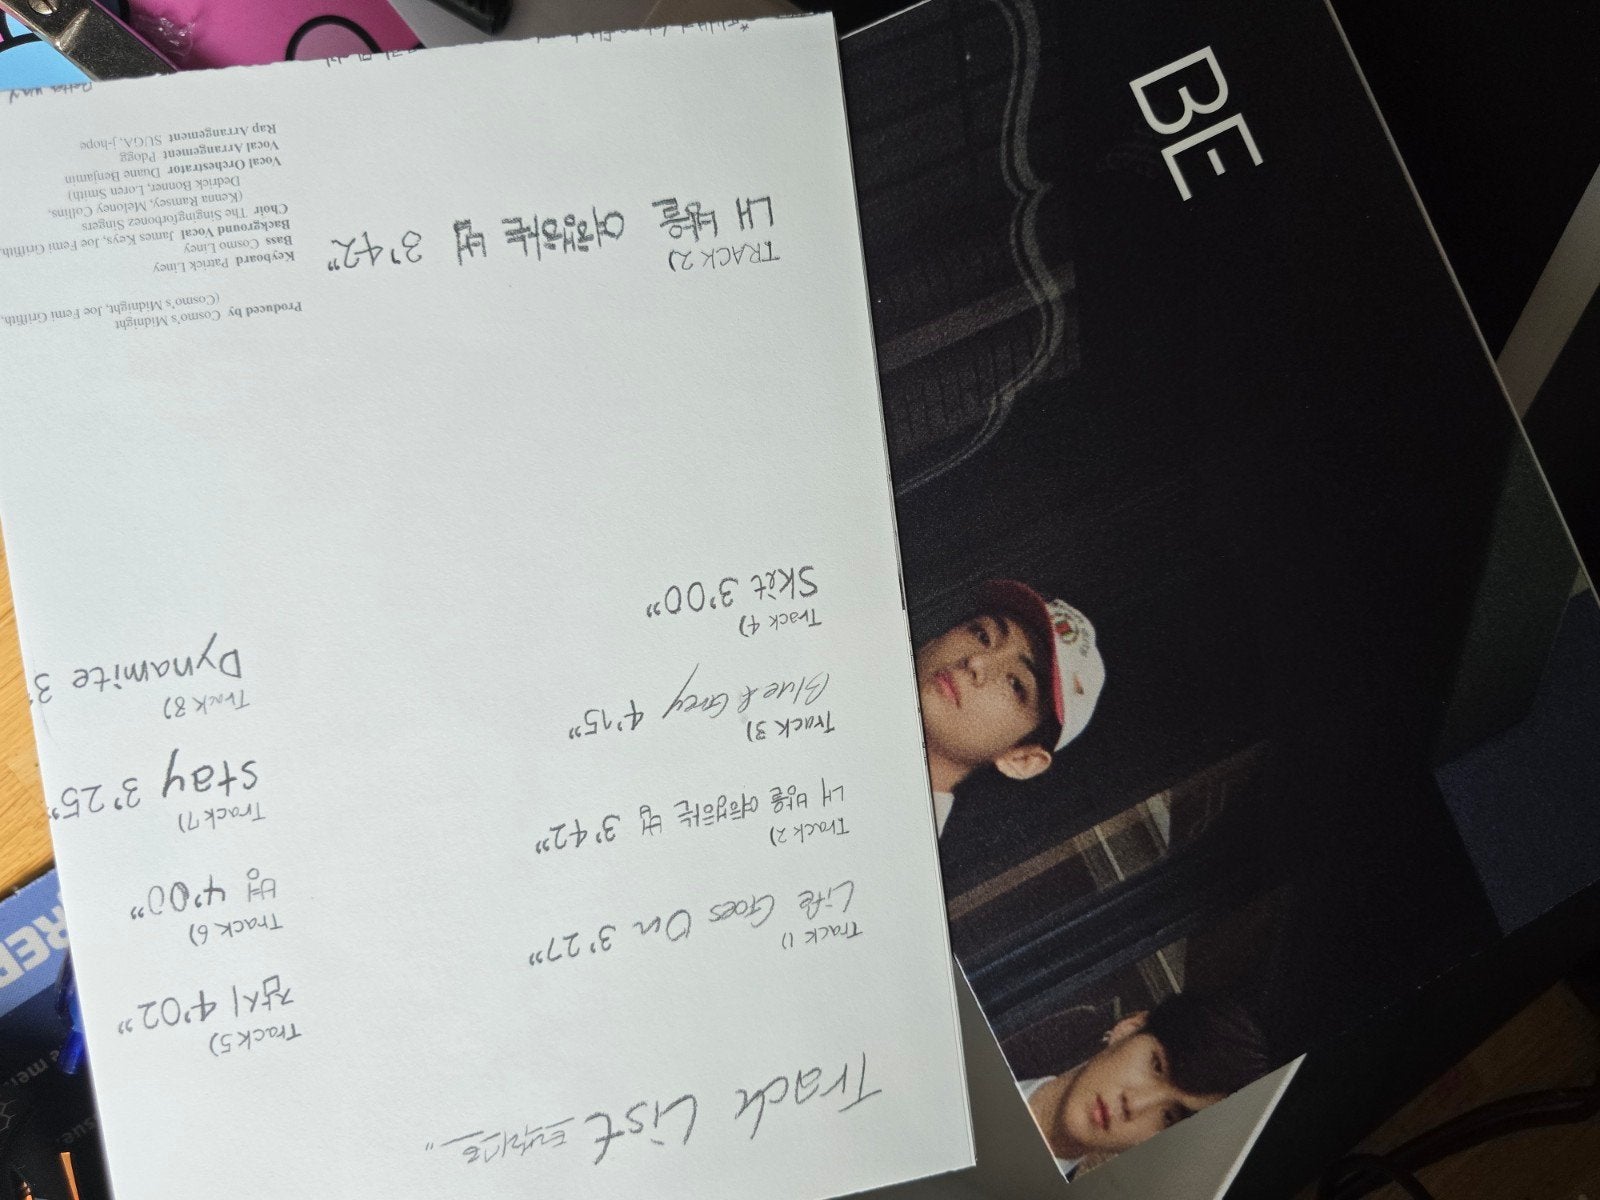 BE
Track List 트랙리스트
Track 1)
Life Goes On 3'27"
Track 2)
내 방을 여행하는 법 3'42"
Track 3)
Blue & Grey 4'15"
Track 4)
Skit 3'00"
Track 5)
잠시 4'02"
Track 6)
병 4'00"
Track 7)
Stay 3'25"
Track 8)
Dynamite 3'
TRACK 2)
내 방을 여행하는 법 3'42"
Produced by Cosmo's Midnight
(Cosmo's Midnight, Joe Femi Griffith,
Keyboard Patrick Liney
Bass Cosmo Liney
Background Vocal James Keys, Joe Femi Griffith,
Choir The Singingforbonez Singers
(Kenna Ramsey, Meloney Collins,
Dedrick Bonner, Loren Smith)
Vocal Orchestrator Duane Benjamin
Vocal Arrangement Pdogg
Rap Arrangement SUGA, j-hope